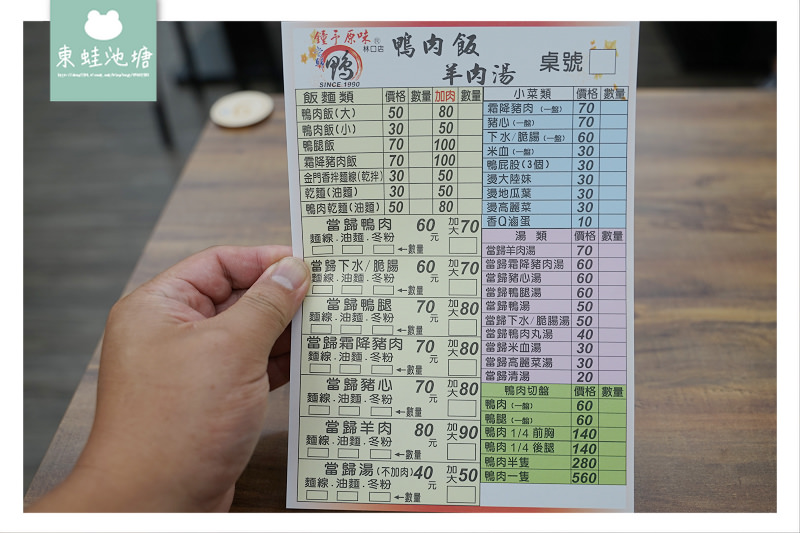 東蛙池塘
鐘予原味
林口店
鴨
SINCE 1990
鴨肉飯
羊肉湯
桌號
飯麵類 價格 數量 加肉 數量
鴨肉飯(大) 50 80
鴨肉飯(小) 30 50
鴨腿飯 70 100
霜降豬肉飯 70 100
金門香拌麵線(乾拌) 30 50
乾麵(油麵) 30 50
鴨肉乾麵(油麵) 50 80
當歸鴨肉 60元 加大70
麵線.油麵.冬粉
←數量
當歸下水/脆腸 60元 加大70
麵線.油麵.冬粉
←數量
當歸鴨腿 70元 加大80
麵線.油麵.冬粉
←數量
當歸霜降豬肉 70元 加大80
麵線.油麵.冬粉
←數量
當歸豬心 70元 加大80
麵線.油麵.冬粉
←數量
當歸羊肉 80元 加大90
麵線.油麵.冬粉
←數量
當歸湯(不加肉) 40元 加大50
麵線.油麵.冬粉
←數量
小菜類 價格 數量
霜降豬肉(一盤) 70
豬心(一盤) 70
下水/脆腸(一盤) 60
米血(一盤) 30
鴨屁股(3個) 30
燙大陸妹 30
燙地瓜葉 30
燙高麗菜 30
香Q滷蛋 10
湯類 價格 數量
當歸羊肉湯 70
當歸霜降豬肉湯 60
當歸豬心湯 60
當歸鴨腿湯 60
當歸鴨湯 50
當歸下水/脆腸湯 50
當歸鴨肉丸湯 40
當歸米血湯 30
當歸高麗菜湯 30
當歸清湯 20
鴨肉切盤 價格 數量
鴨肉(一盤) 60
鴨腿(一盤) 60
鴨肉 1/4 前胸 140
鴨肉 1/4 後腿 140
鴨肉半隻 280
鴨肉一隻 560